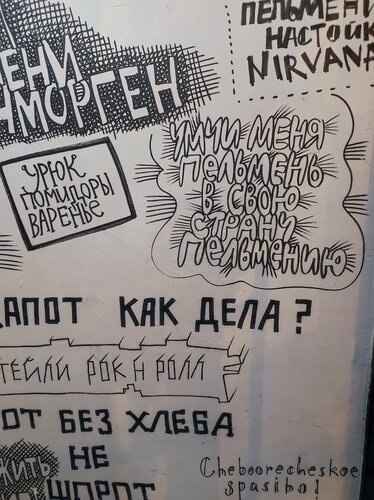 ПЕЛЬМЕНИ
НАСТОЙК
NIRVANA
ЕНИ
НМОРГЕН
УРЮК
ПОМИДОРЫ
ВАРЕНЬЕ
УМЧИ МЕНЯ
ПЕЛЬМЕНЬ
В СВОЮ
СТРАНУ
ПЕЛЬМЕНИЮ
КАПОТ КАК ДЕЛА?
ТЕЙЛИ РОК Н РОЛЛ
ОТ БЕЗ ХЛЕБА
ЖИТЬ НЕ
ШОРОТ
Cheboorecheskoe
spasibo!